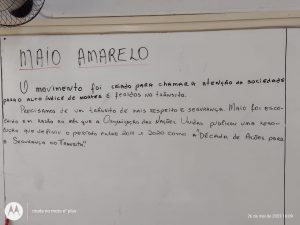 MAIO AMARELO
O movimento foi criado para chamar a atenção da sociedade
para o alto índice de mortes e feridos no trânsito.
Precisamos de um trânsito de mais respeito e segurança. Maio foi esco-
lhido em razão do mês que a Organização das Nações Unidas publicou uma reso-
lução que definiu o período entre 2011 a 2020 como a "Década de Ações para
a Segurança no Trânsito".
criada no moto e⁷ plus
26 de mai de 2023 16:09